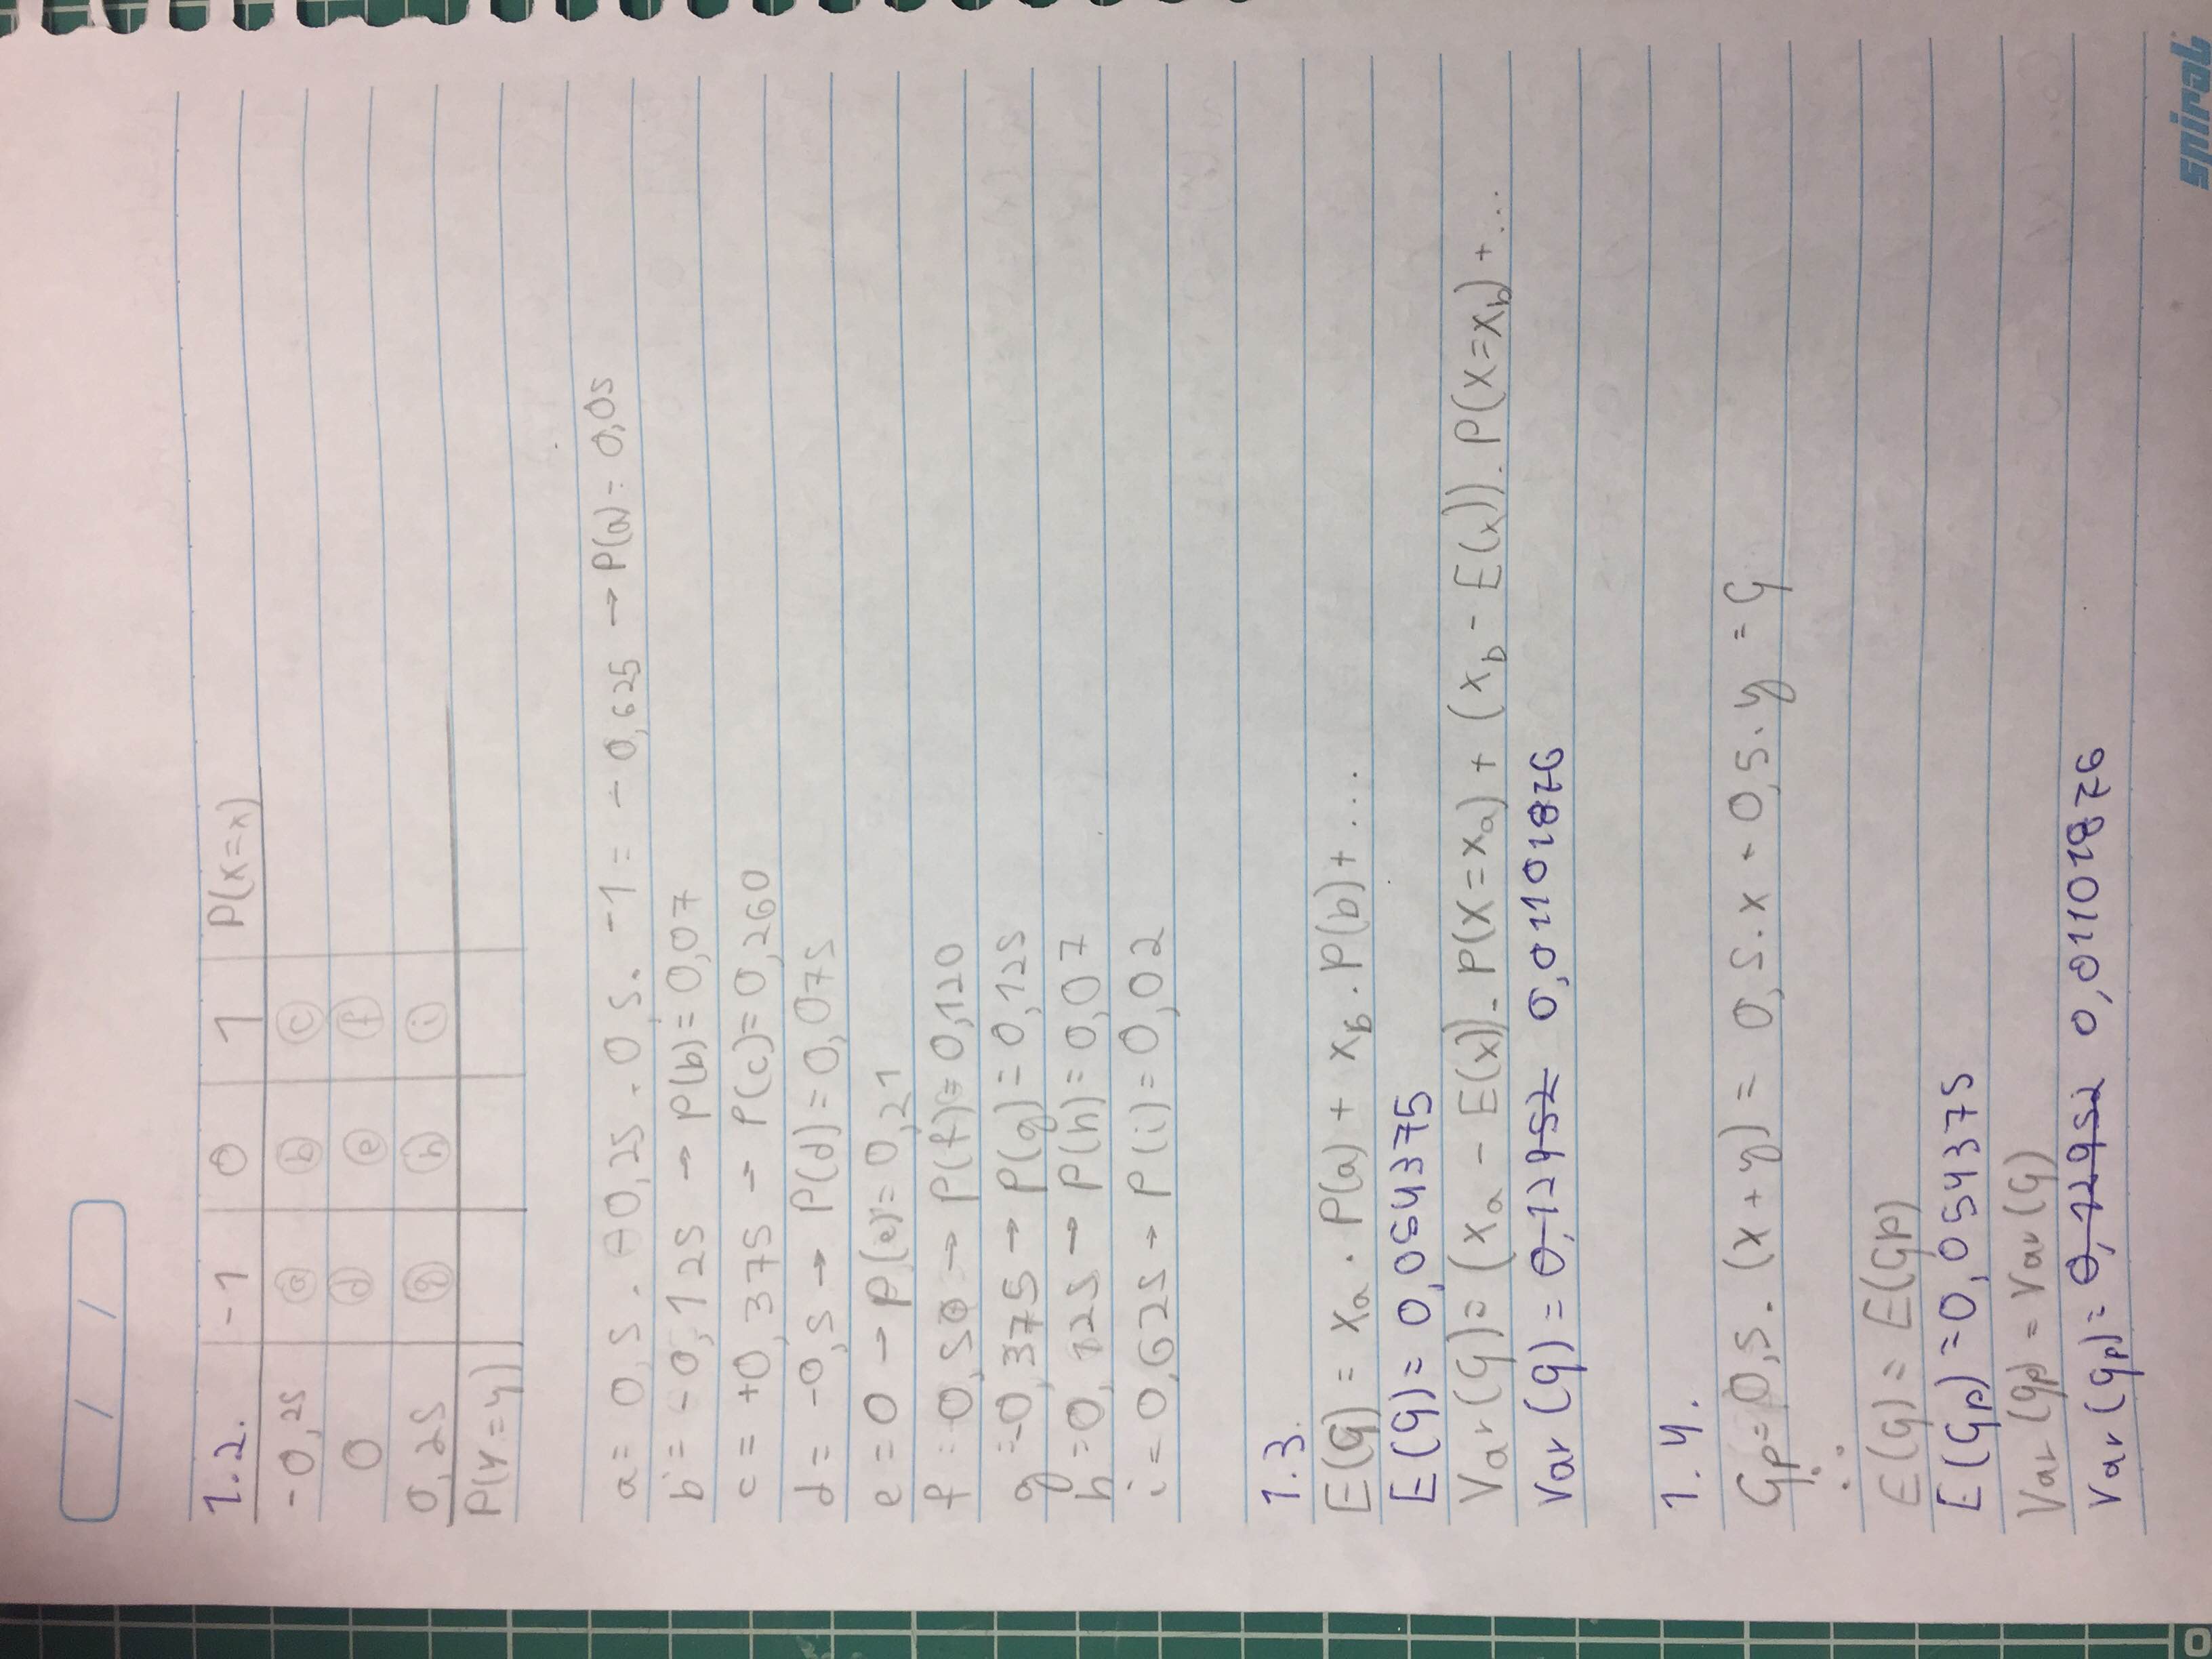 / /
1.2. -1 0 1 P(X=x)
-0,25 a b c
0 d e f
0,25 g h i
P(Y=y)
a= 0,5 . -0,25 + 0,5 . -1 = -0,625 → P(a) = 0,05
b = -0,125 → P(b) = 0,07
c = +0,375 → P(c) = 0,260
d = -0,5 → P(d) = 0,075
e = 0 → P(e) = 0,21
f = 0,50 → P(f) = 0,120
g = -0,375 → P(g) = 0,125
h = 0,125 → P(h) = 0,07
i = 0,625 → P(i) = 0,02
1.3.
E(G) = xa . P(a) + xb . P(b) + ...
E(G) = 0,054375
Var(G) = (xa - E(x)) . P(X = xa) + (xb - E(x)) . P(X = xb) + ...
Var(G) = 0,12952 0,011012876
1.4.
Gp = 0,5 . (x + y) = 0,5 . x + 0,5 . y = G
∴ E(G) = E(Gp)
E(Gp) = 0,054375
Var(Gp) = Var(G)
Var(Gp) = 0,12952 0,011012876
0
spiral